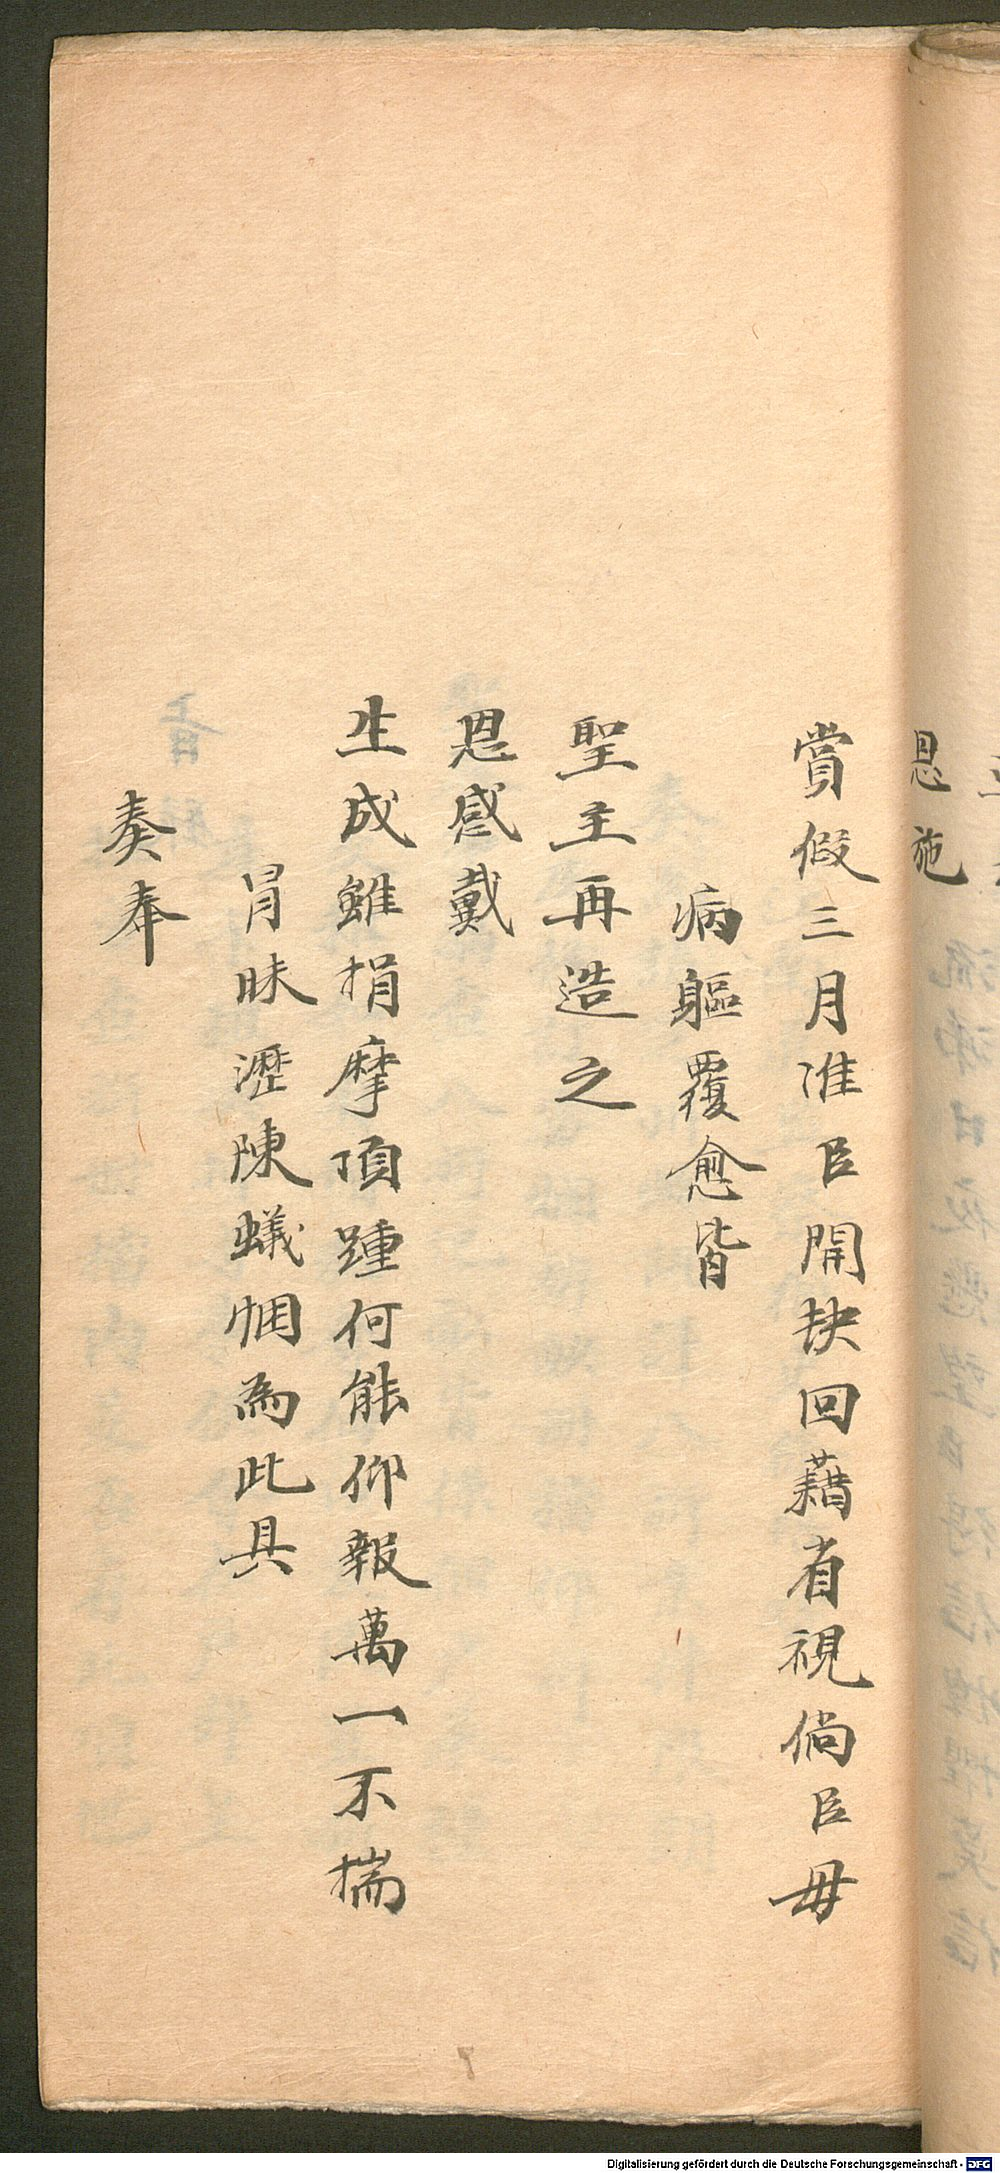 恩施
賞假三月准臣開缺回藉省視倘臣毋
病軀覆愈皆
聖主再造之
恩感戴
生成雖捐摩頂踵何能仰報萬一不揣
冐昧瀝陳蟻悃為此具
奏奉
Digitalisierung gefördert durch die Deutsche Forschungsgemeinschaft - DFG